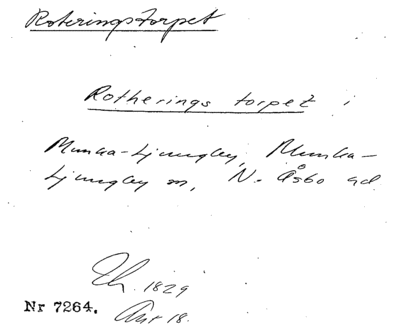 Roteringstorpet
Rotherings torpet i
Munka-Ljungby, Munka-
Ljungby sn, N. Åsbo hd
1829
Nr 7264. Aur 18.